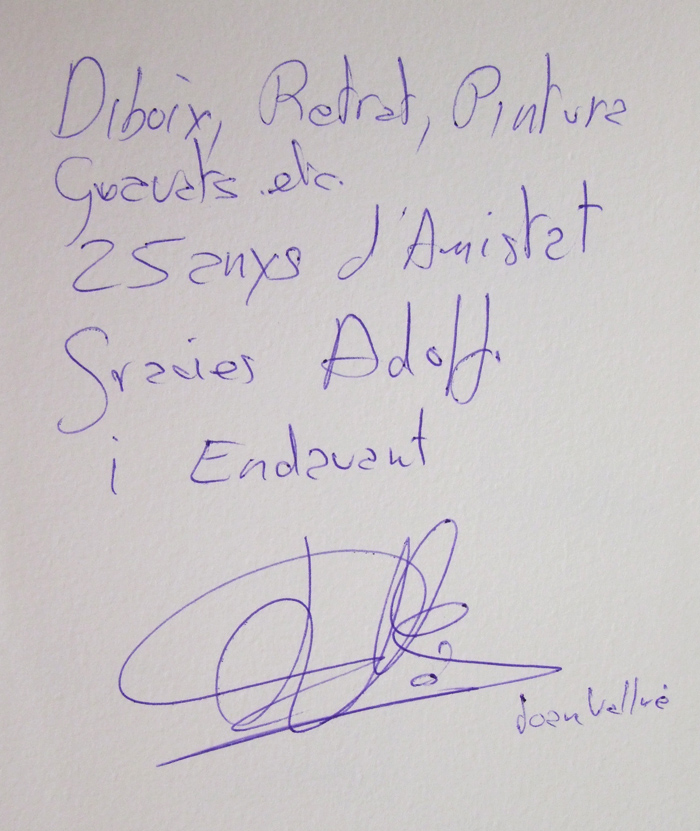 Diboix, Retrat, Pintura
Gravats etc.
25 anys d'Amistat
Gracies Adolf.
i Endavant
Joan Vallvé